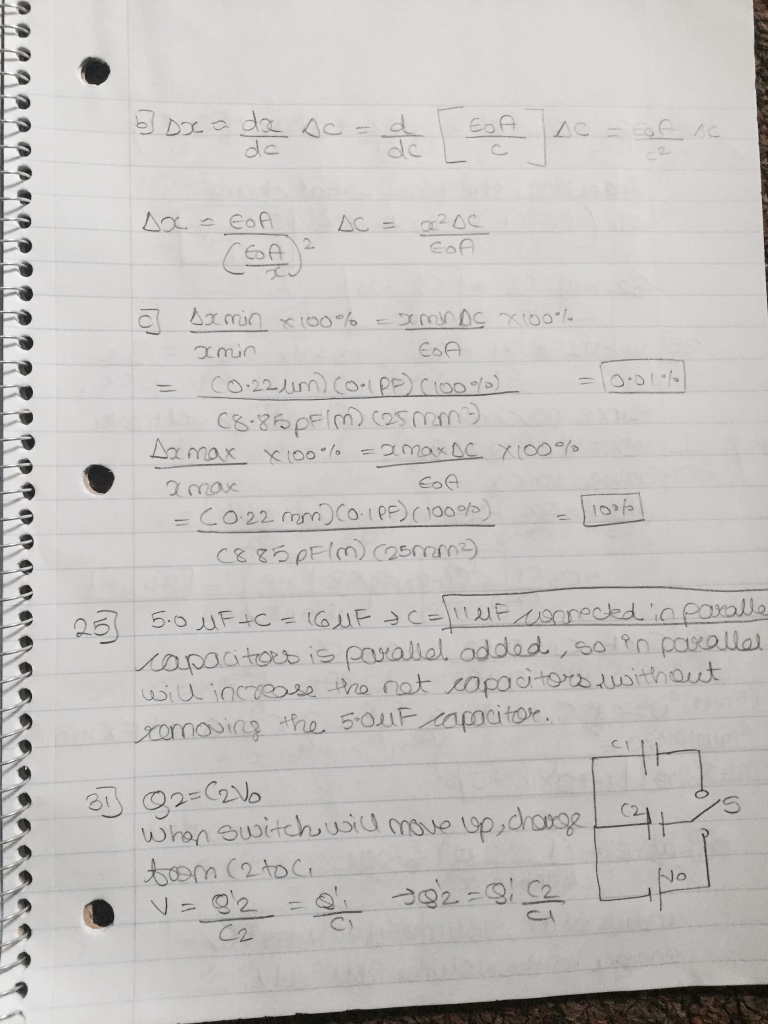 b] Δx ≈ dx/dc ΔC = d/dc [ЄoA/c] ΔC = ЄoA/c² ΔC
Δx ≈ ЄoA/(ЄoA/x)² ΔC = x²ΔC/ЄoA
c] Δxmin/xmin ×100% = xminΔC/ЄoA ×100%
= (0.22 μm)(0.1PF)(100%)/(8.85pF/m)(25mm²) = 0.01%
Δxmax/xmax ×100% = xmaxΔC/ЄoA ×100%
= (0.22 mm)(0.1PF)(100%)/(8.85pF/m)(25mm²) = 10%
25] 5.0 μF+C = 16μF → C= 11μF connected in paralle
capacitors is parallel added, so in parallel
will increase the net capacitors without
removing the 5.0μF capacitor.
31] Q2=C2V0
When switch will move up, charge
from C2 to C1
V = Q'2/C2 = Q'1/C1 → Q'2 = Q'1 C2/C1
C1
C2
S
V0